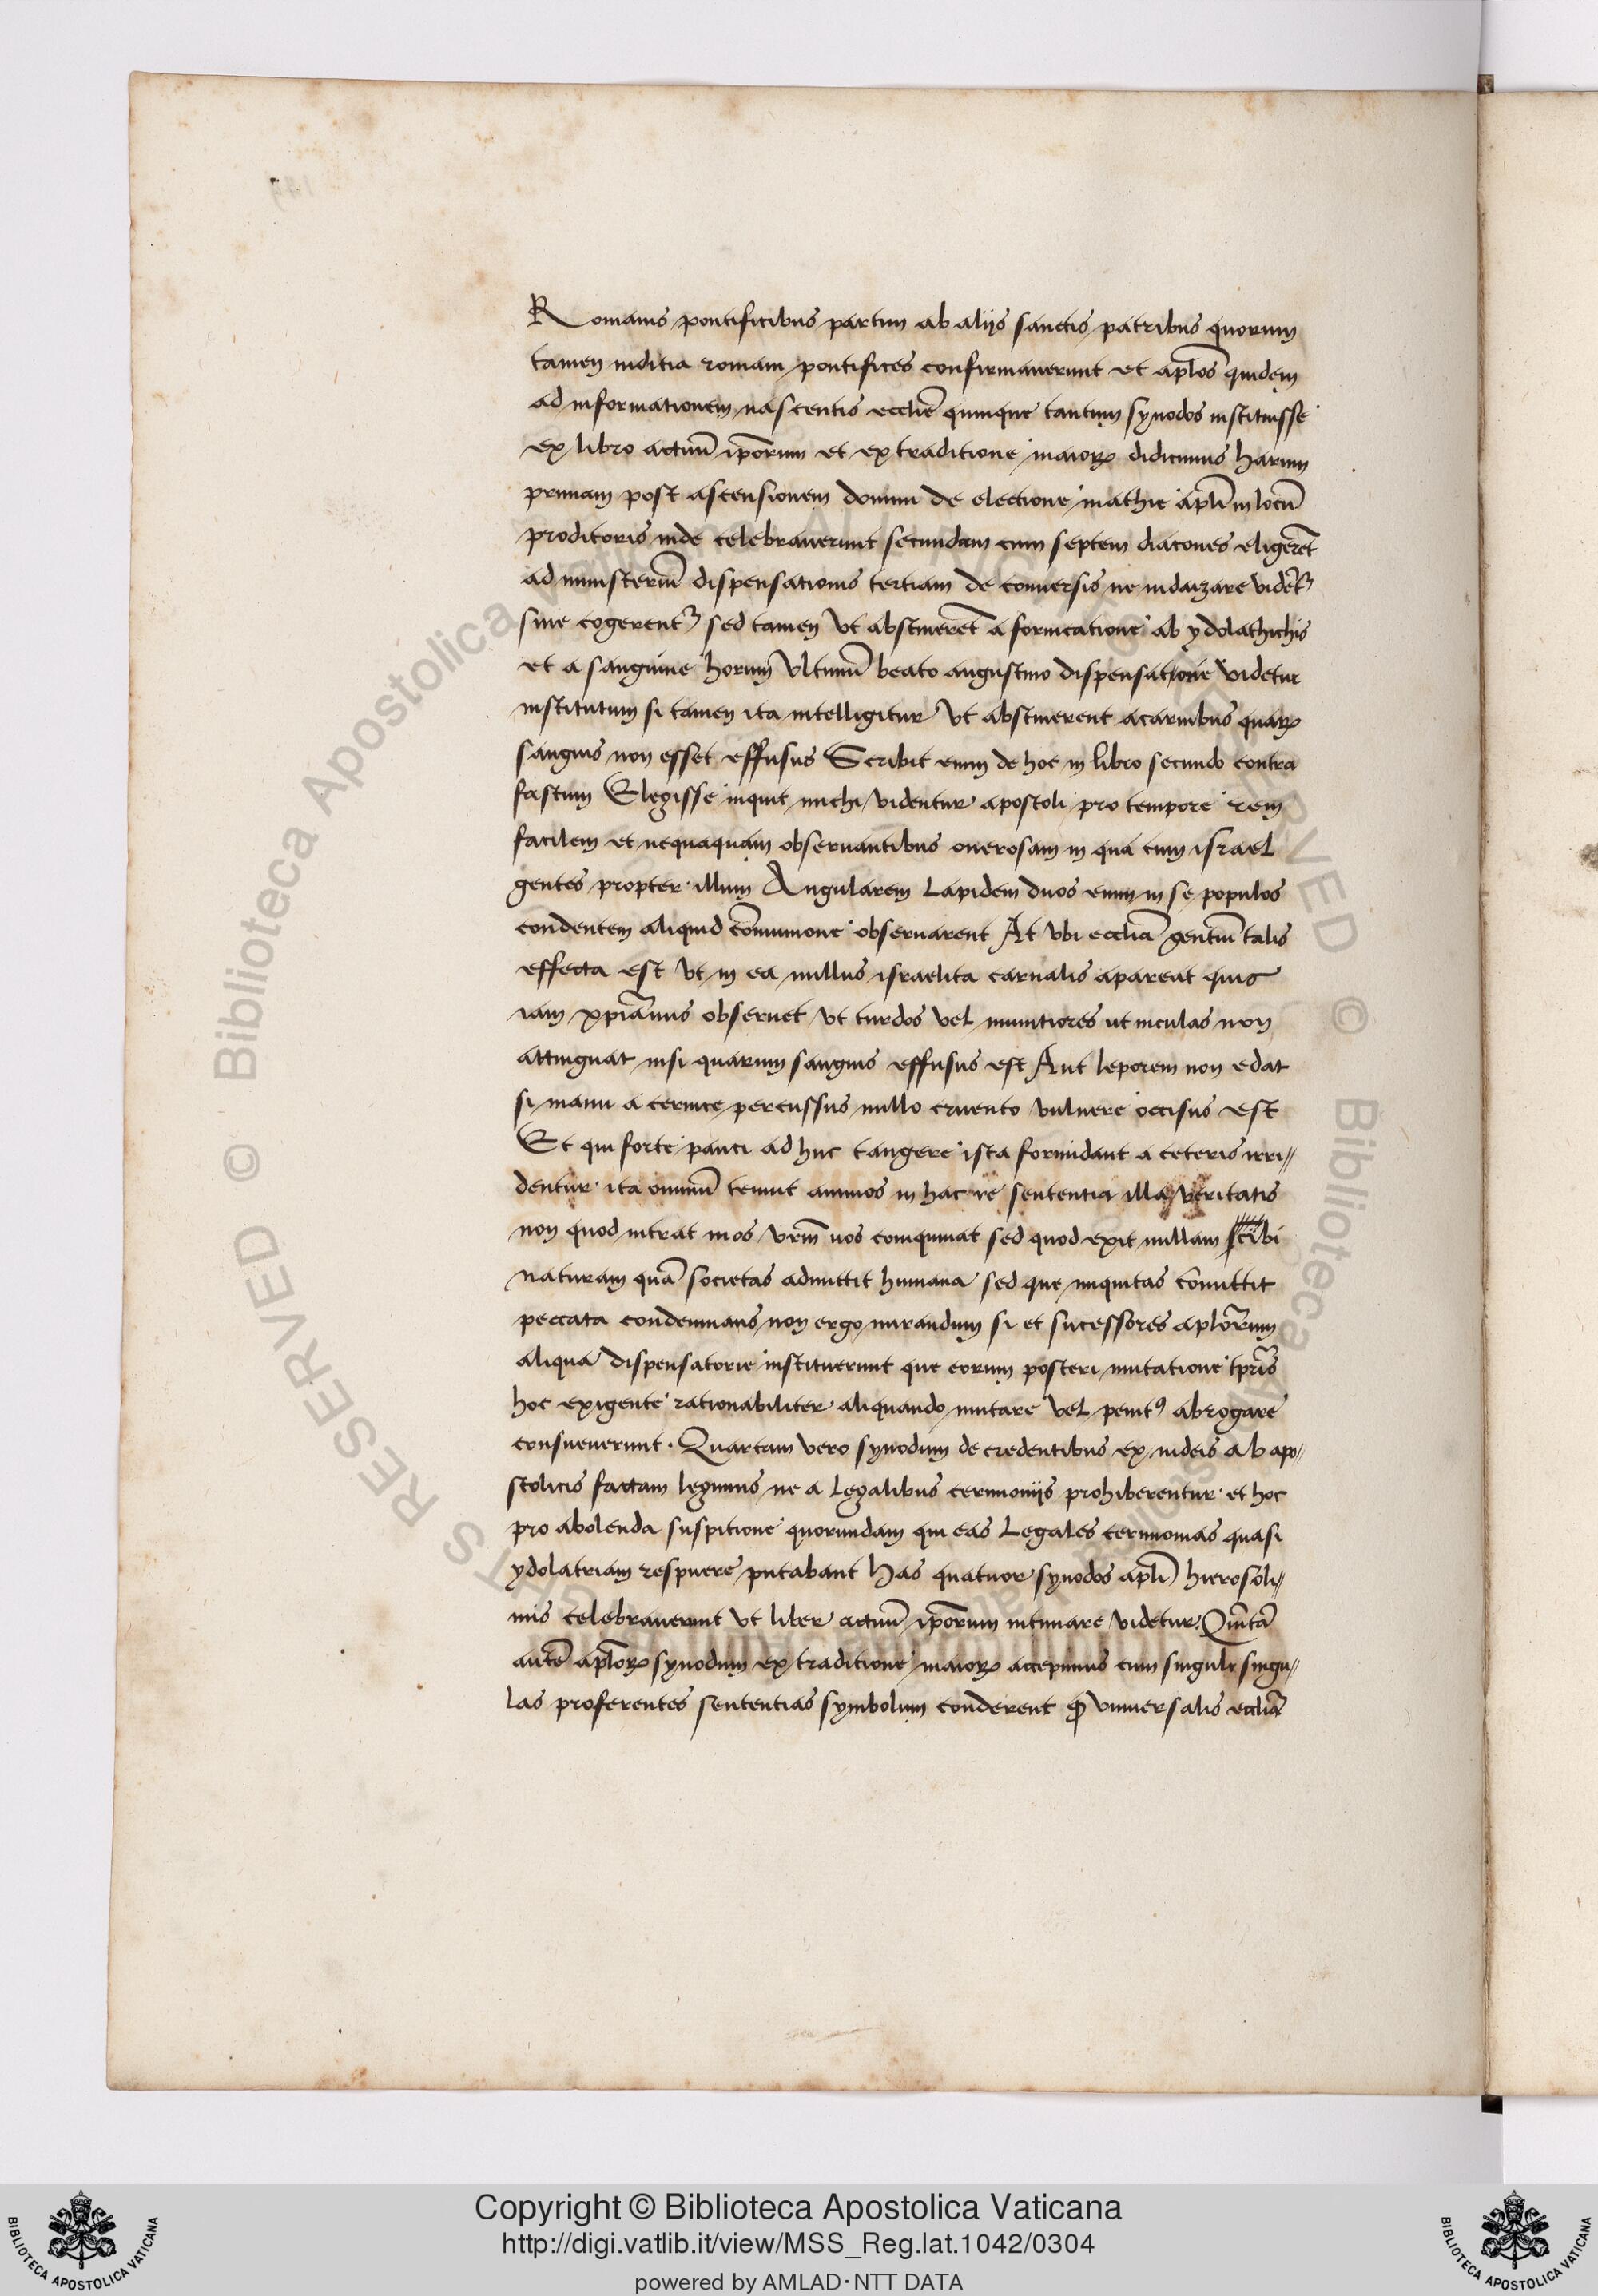 Romanis pontificibus partim ab aliis sanctis patribus quorum
tamen inditia romani pontifices confirmaverunt et ap̄los quidem
ad informationem nascentis eccl̄ie quinque tantum synodos instituisse
ex libro actuū ip̄orum et ex traditione maioꝝ didicimus Harum
primam post ascensionem domini de electione mathie apl̄i in locū
proditoris inde celebraverunt secundam cum septem diacones eligerēt
ad ministeriū dispensationis tertiam de conversis ne iudaizare vidērt̉
sive cogerent̉ sed tamen Vt abstinerēt a fornicatione ab ydolathichis
et a sanguine horum Vltimū beato augustino dispensatorie videtur
institutum si tamen ita intelligitur Vt abstinerent a carnibus quaꝝ
sanguis non esset effusus Scribit enim de hoc in libro secundo contra
fastum Elegisse inquit michi videntur apostoli pro tempore rem
facilem et nequaquam observantibus onerosam in qua cum israel
gentes propter illum Angularem Lapidem duos enim in se populos
condentem aliquid cōmunione observarent At vbi eccliā gentiū talis
effecta est Vt in ea nullus israelita carnalis apareat quis
iam xp̄ianus observet Vt turdos vel munitiores ut inculas non
attinguat nisi quarum sanguis effusus est Aut leporem non edat
si manu a cervice percussus nullo cruento vulnere occisus est
Et qui forte pauci ad huc tangere ista formidant a ceteris irri//
dentur ita omniū tenuit animos in hac re sententia illa veritatis
non quod intrat in os vr̄m vos coinquinat sed quod exit nullam cibi
naturam quā societas admittit humana sed que iniquitas cōmittit
peccata condemnans non ergo mirandum si et sucessores aplōrum
aliqua dispensatorie instituerunt que eorum posteri mutatione tpr̄is
hoc exigente rationabiliter aliquando mutare vel penitꝰ abrogare
consueverunt. Quartam vero synodum de credentibus ex iudeis ab apo//
stolicis factam legimus ne a Legalibus cerimoniis prohiberentur et hoc
pro abolenda suspitione quorundam qui eas Legales cerimonias quasi
ydolatriam respuere putabant Has quatuor synodos apl̄i hierosoli//
mis celebraverunt Vt liber actuū ip̄orum intimare videtur. Quītā
autē aplōꝝ synodum ex traditione maioꝝ accepimus cum singuli singu//
las proferentes sententias symbolum conderent ꝙ vniversalis eccliā
Copyright © Biblioteca Apostolica Vaticana
http://digi.vatlib.it/view/MSS_Reg.lat.1042/0304
powered by AMLAD·NTT DATA